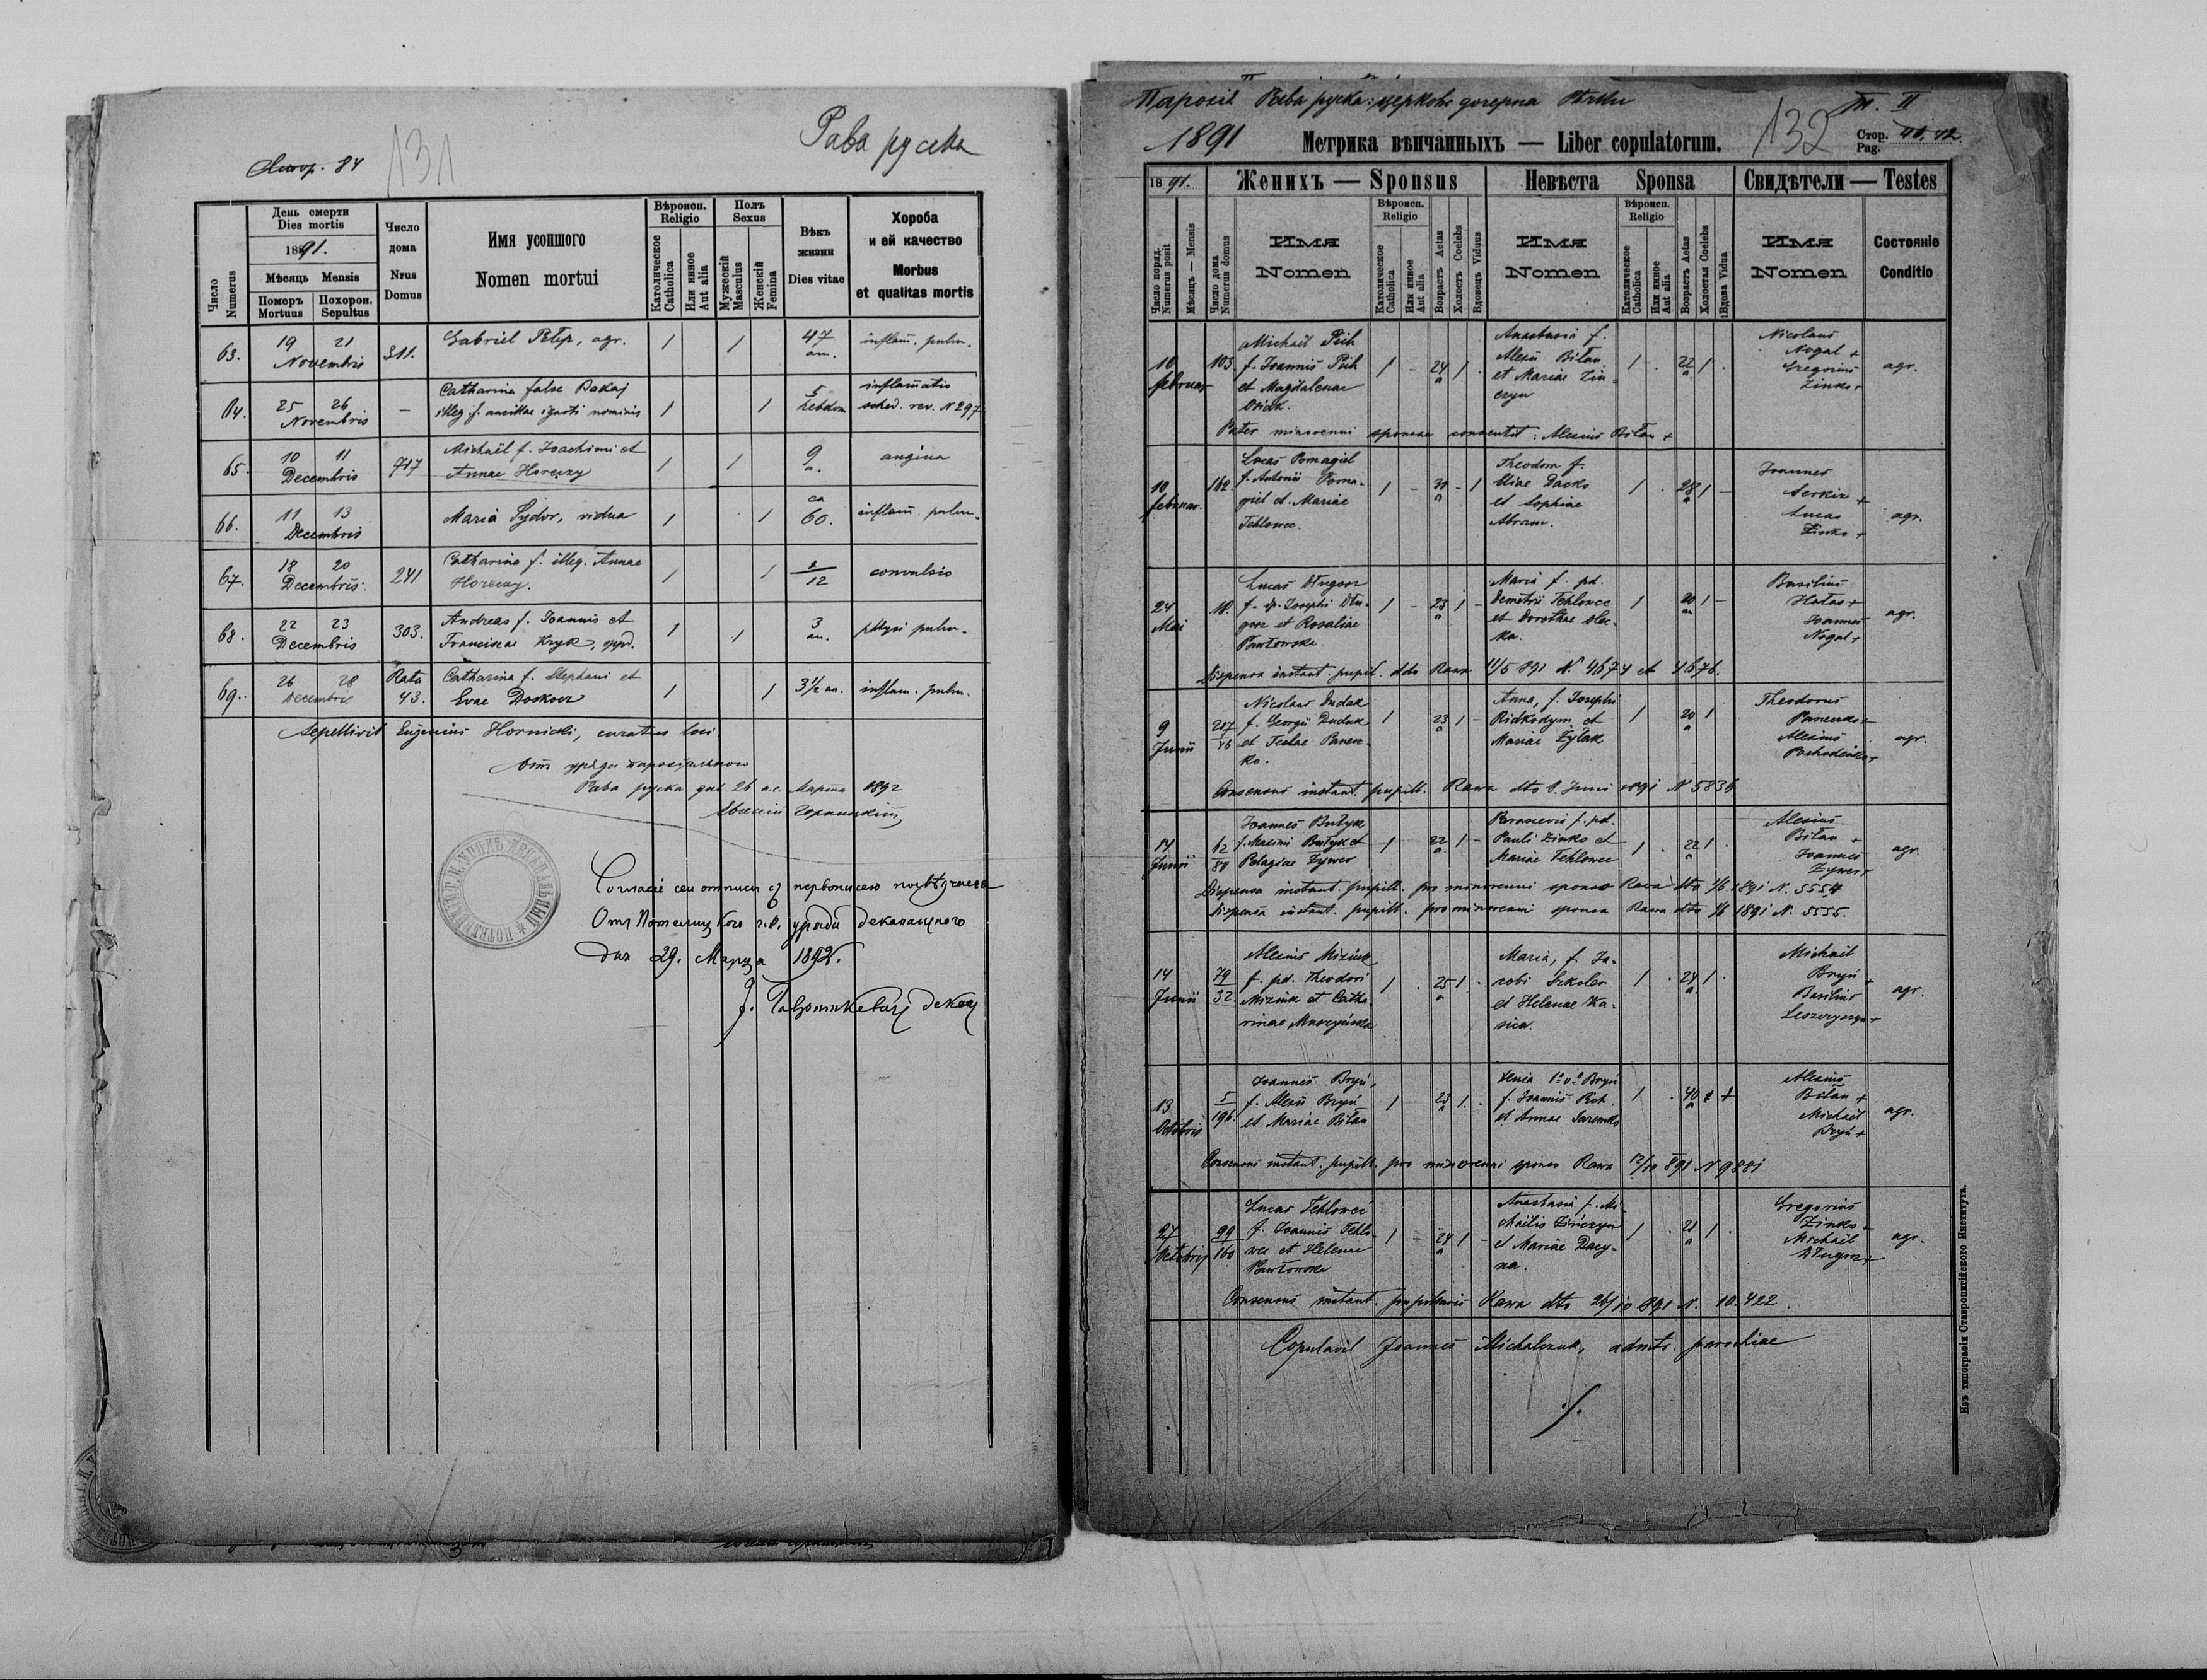 Стор. 84
131
Рава руска
Число
Numerus
День смерти
Dies mortis
1891.
Мѣсяць Mensis
Померъ
Mortuus
Похорон.
Sepultus
Число
дома
Nrus
Domus
Имя усопшого
Nomen mortui
Вѣроисп.
Religio
Католическое
Catholica
Или иное
Aut alia
Полъ
Sexus
Мужескій
Masculus
Женскій
Femina
Вѣкъ
жизни
Dies vitae
Хороба
и ей качество
Morbus
et qualitas mortis
63. 19 21 311. Gabriel Petep, agr. 1 1 47 inflam. pulm.
Novembris an.
Catharina false Bakaj 5 inflamatio
64. 25 26 — illeg. f. ancillae ignoti nominis 1 1 hebdom sched. rev. N 297
Novembris
Michaël f. Joachimi et
65. 10 11 717 Annae Horeczy 1 1 9 angina
Decembris a.
66. 11 13 Maria Sydor, vidua 1 1 ca 60. inflam. pulm.
Decembris
Catharina f. illeg. Annae
67. 18 20 241 Horeczy. 1 1 1/12 convulsio
Decembris
Andreas f. Joannis et
68. 22 23 303. Franciscae Kryk, 1 1 3 an. phtysi pulm.
Decembris
Rata Catharina f. Stephani et
69. 26 28 43. Evae Doskocz 1 1 3½ an. inflam. pulm.
Decembris
Sepellivit Eugenius Hornicki, curatus loci
Отъ уряда парохіяльного
Рава руска дня 26 н.с. Марта 1892
Евгеній Горницкій
Согласіе сеи отписи съ первописею посвѣдчаеся
Отъ Потелицкого г.к. уряда деканацкого
дня 29. Марца 1892.
132
1891
Метрика вѣнчанныхъ — Liber copulatorum.
Т. II
Стор.
Pag.
1891.
Женихъ — Sponsus
Невѣста Sponsa
Свидѣтели — Testes
Число поряд.
Numerus posit
Мѣсяцъ — Mensis
Число дома
Numerus domus
Имя
Nomen
Вѣроисп.
Religio
Католическое
Catholica
Или иное
Aut alia
Возрастъ Aetas
Холостъ Coelebs
Вдовецъ Viduus
Имя
Nomen
Вѣроисп.
Religio
Католическое
Catholica
Или иное
Aut alia
Возрастъ Aetas
Холостая Coelebs
Вдова Vidua
Имя
Nomen
Состояніе
Conditio
10 februar 103.
Michaël Pich
f. Joannis Pich
et Magdalenae
1 - 24 a 1
Anastasia f.
Alexii Biłan
et Mariae Zin-
czyn
1 22 a 1
Nicolaus
Nogal +
Gregorius
Zinko +
agr.
Pater minorenni sponsae consentit: Alexius Biłan +
10 februar. 162.
Lucas Pomagiel
f. Antonii Poma-
giel et Mariae
Tehlowec.
1 - 31 a - 1
Theodora f.
Eliae Dacko
et Sophiae
Abram.
1 28 a 1 -
Joannes
Serkiz +
Lucas
Zinko +
agr.
24 Mai 10.
Lucas Długosz
f. Josephi Dłu-
gosz et Rosaliae
Pawłowska.
1 - 23 a 1 -
Maria f. pd.
Demetrii Tehlowec
et Dorothae Olec-
ka.
1 20 an 1 -
Basilius
Hałas +
Joannes
Nogal +
agr.
Dispensa instant. pupil. dto Rawa 11/5 891 N. 4674 et 4676.
9 Junii 217/46
Nicolaus Dudak
f. Georgii Dudak
et Teclae Panen-
ko.
1 23 a 1 -
Anna, f. Josephi
Ridkodym et
Mariae Żyłak
1 20 a 1
Theodorus
Panenko +
Alexius
Pochodenko +
agr.
Consensus instant. pupill. Rawa dto 8. Junii 891 N 5836
14 Junii 62/80
Joannes Butyk
f. Maximi Butyk et
Pelagiae Zywer
1 22 a 1 -
Parascevia f. pd.
Pauli Zinko et
Mariae Tehlowec
1 22 a 1
Alexius
Biłan +
Joannes
Zywer +
agr.
Dispensa instant. pupill. pro minorenni sponso Rawa dto 1/6 1891 N. 5554
Dispensa instant. pupill. pro minorenni sponsa Rawa dto 1/6 1891 N. 5555.
14 Junii 79/32.
Alexius Miziuk
f. pd. Theodori
Miziuk et Catha-
rinae
1 25 a 1
Maria, f. Ja-
cobi Szkoler
et Helenae Ka-
sica.
1 24 a 1
Michaël
Bryń +
Basilius
agr.
13 Octobris 5/196.
Joannes Bryń,
f. Alexii Bryń
et Mariae Biłan
1 23 a 1.
Xenia 1º vº Bryń
f. Joannis Pich
et Annae Jaremko
1 40 a
Alexius
Biłan +
Michaël
Bryń +
agr.
Consensus instant. pupill. pro minorenni sponso Rawa 12/10 891 N 9881
27 Octobris 99/160
Lucas Tehlowec
f. Joannis Tehlo-
wec et Helenae
Pawłowska
1 - 24 a 1 -
Anastasia f. Mi-
chaëlis Zińczyn
et Mariae Dacy-
na.
1 21 a 1
Gregorius
Zinko +
Michaël
Długosz +
agr.
Consensus instant. pupillaris Rawa dto 26/10 891 N. 10.422.
Copulavit Joannes Michalczuk, admtr. parochiae
Изъ типографіи Ставропигійского Института.